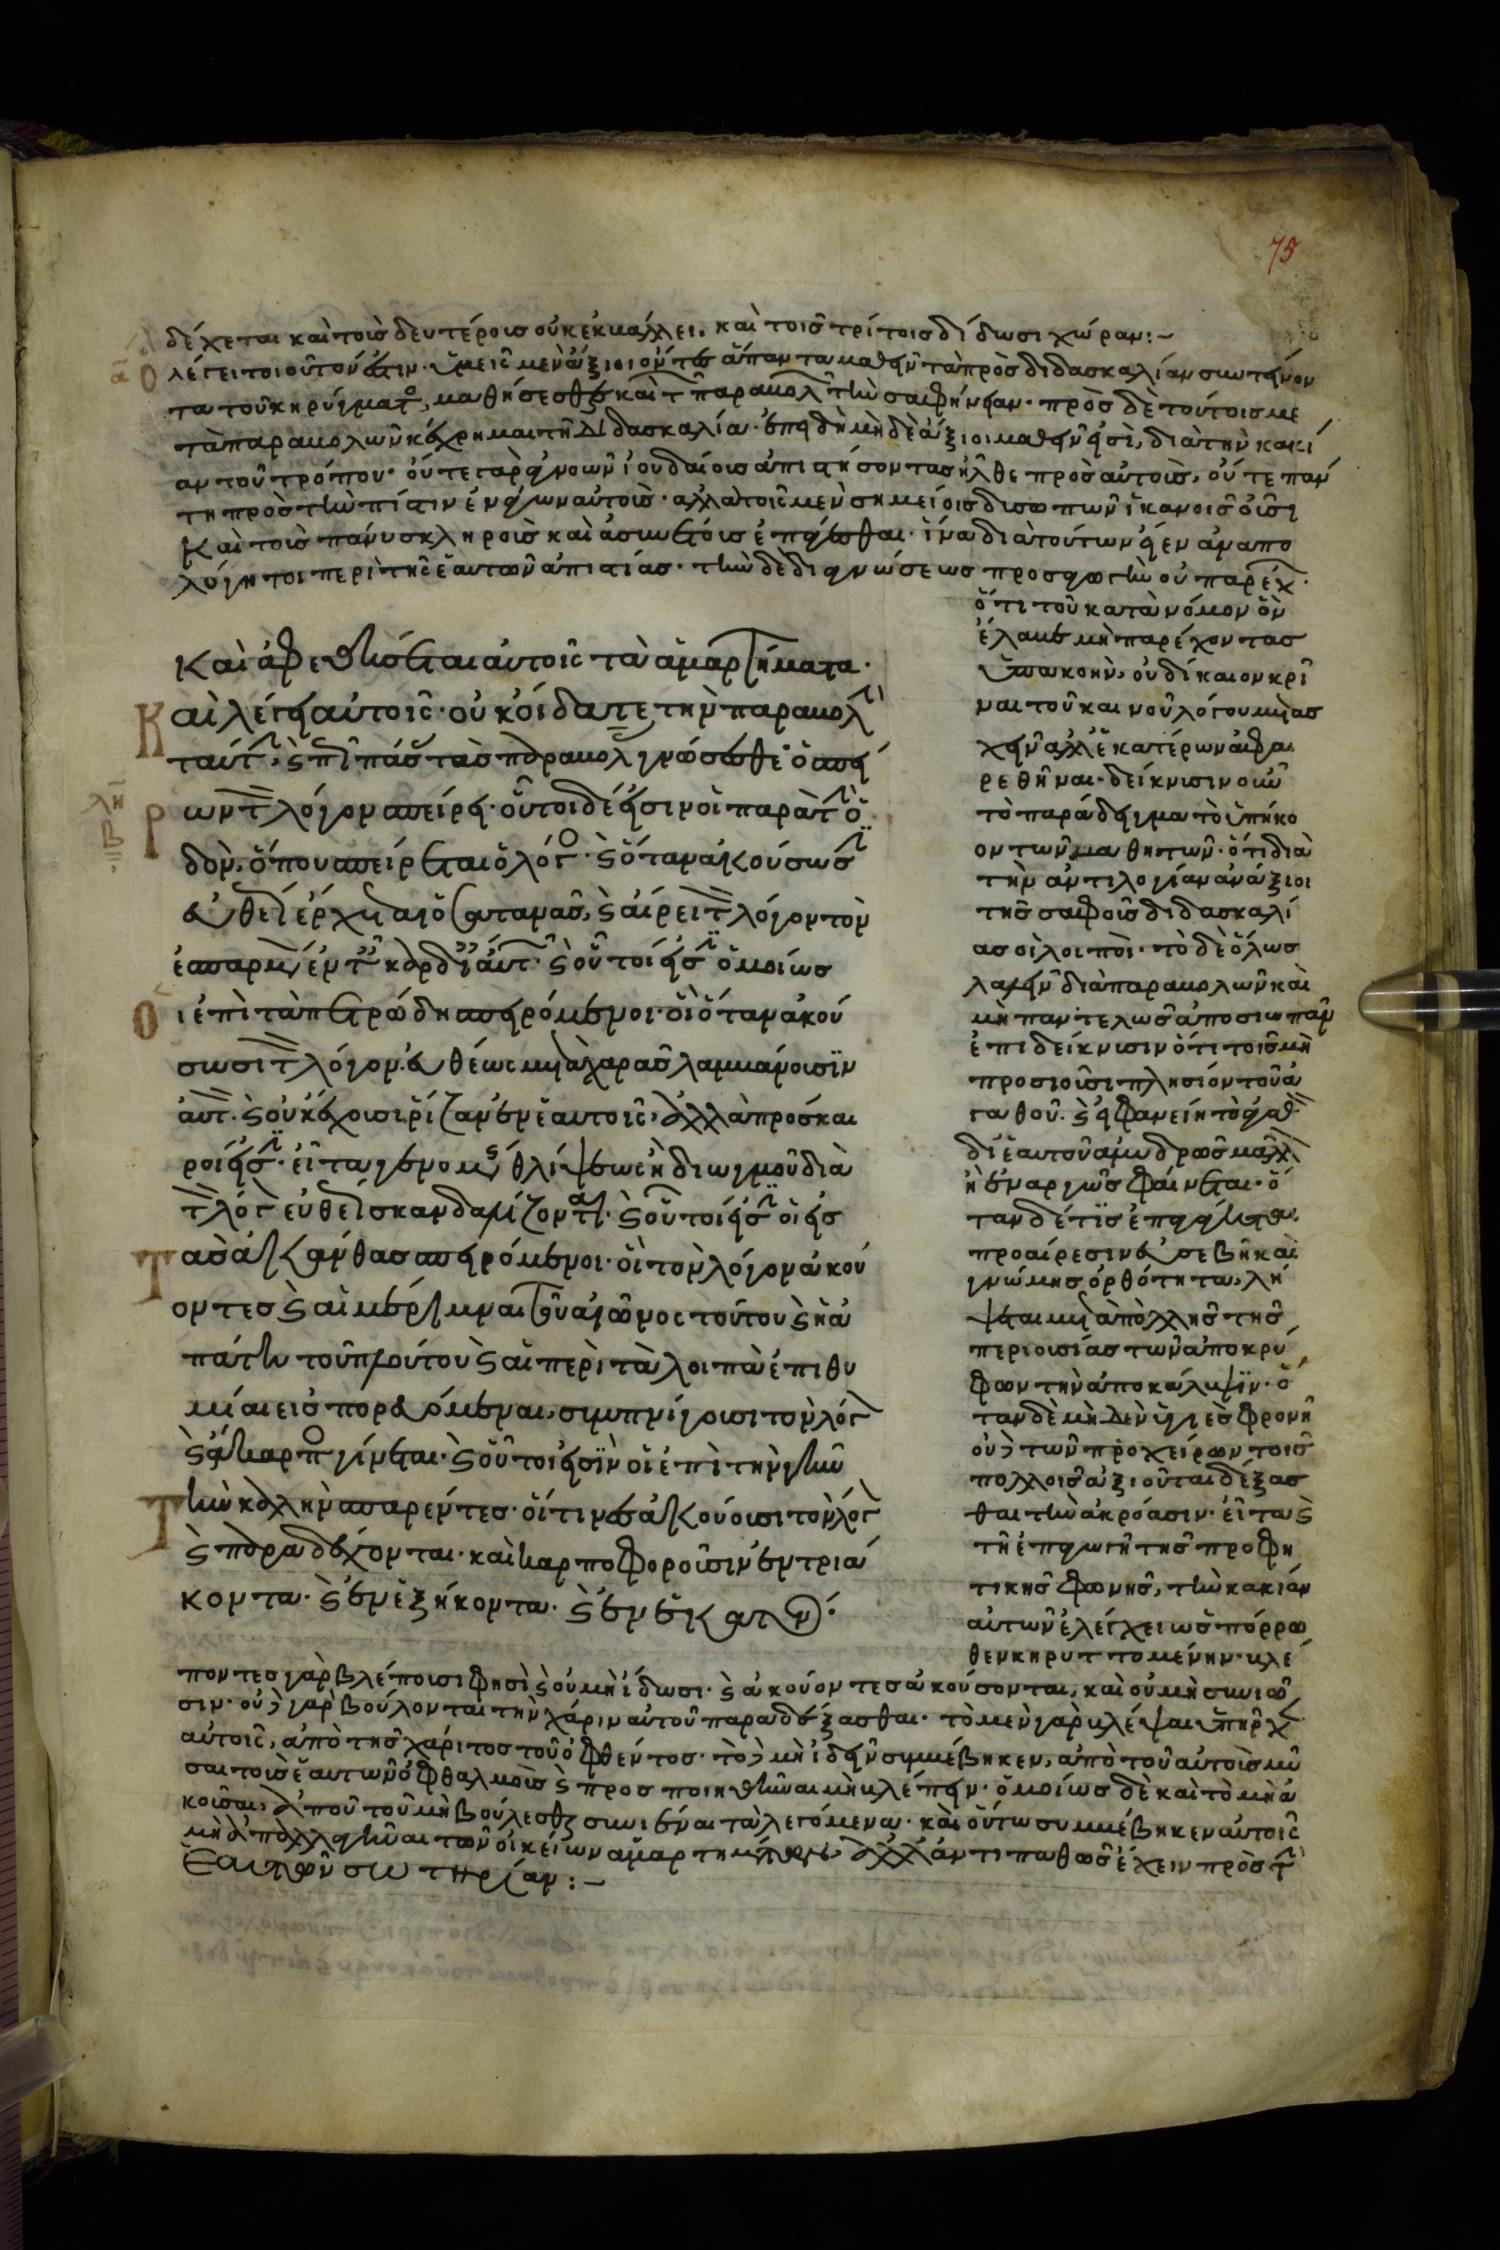 75
δέχεται καὶ τοὺς δευτέρους οὐκ ἐκβάλλει. καὶ τοῖς τρίτοις δίδωσι χώραν:-
ὃ λέγει τοιοῦτόν ἐστιν. ὑμεῖς μὲν ἄξιοι ὄντες ἅπαντα μαθεῖν τὰ πρὸς διδασκαλίαν συντείνον
τα τοῦ κηρύγματο, μαθήσεσθε καὶ τ παραβολ τὴν σαφήνειαν. πρὸς δὲ τούτοις με
τὰ παραβολῶν κέχρημαι τῇ διδασκαλία. ἐπειδὴ μὴδὲ ἄξιοι μαθεῖν εἰσὶ, διὰ τὴν κακί
αν τοῦ τρόπου. οὔτε γὰρ ἀγνοῶν ἰουδαίοις ἀπιστήσοντας ἦλθε πρὸς αὐτοὺς, οὔτε πάν
τη πρὸς τὴν πίστιν ἐνάγων αὐτοὺς. ἀλλὰ τοῖς μὲν σημείοις δυσωπῶν ἱκανοῖς οὖσι
καὶ τοὺς πάνυ σκληροὺς καὶ ἀσυνέτους ἐπάγεσθαι. ἵνα διὰ τούτων ὦσιν ἀναπο
λόγητοι περὶ τῆς ἑαυτῶν ἀπιστίας. τὴν δὲ διαγνώσεως προσαγωγὴν οὐ παρέχ.
Καὶ ἀφεθήσεται αὐτοῖς τὰ ἁμαρτήματα.
Καὶ λέγει αὐτοῖς. οὐκ οἴδατε τὴν παραβολ
ταύτ, ϛ πῶ πάσας τὰς παραβολ γνώσεσθε. ὁ σπεί
λη β
ρων τ λόγον σπείρει. οὗτοι δέ εἰσιν οἱ παρὰ τ ὁ
δὸν, ὅπου σπείρεται ὁ λόγο. ϛ ὅταν ἀκούσωσ
εὐθὲ ἔρχεται ὁ σατανᾶς, ϛ αἴρει τ λόγον τὸν
ἐσπαρμ ἐν τ καρδί αὐτ. ϛ οὗτοί εἰσ ὁμοίως
Οἱ ἐπὶ τὰ πετρώδη σπειρόμενοι. οἳ ὅταν ἀκού
σωσι τ λόγον. εὐθέως μετὰ χαρᾶς λαμβάνουσιν
αὐτ. ϛ οὐκ ἔχουσι ῥίζαν ἐν ἑαυτοῖς, ἀλλὰ πρόσκαι
ροί εἰσ. εἶτα γενομ θλίψεως ἢ διωγμοῦ διὰ
τ λόγ εὐθὲ σκανδαλίζοντ. ϛ οὗτοί εἰσ οἱ εἰς
Τὰς ἀκάνθας σπειρόμενοι. οἱ τὸν λόγον ἀκού
οντες ϛ αἱ μέριμναι τοῦ αἰῶνος τούτου ϛ ἡ ἀ
πάτη τοῦ πλούτου ϛ αἱ περὶ τὰ λοιπὰ ἐπιθυ
μίαι εἰσπορευόμεναι, συμπνίγουσι τὸν λόγ
ϛ ἄκαρπο γίνεται. ϛ οὗτοί εἰσὶν οἱ ἐπὶ τὴν γῆν
Τὴν καλὴν σπαρέντες. οἵτινες ἀκούουσι τὸν λόγ
ϛ παραδέχονται. καὶ καρποφοροῦσιν ἐν τριά
κοντα. ϛ ἐν ἑξήκοντα. ϛ ἐν ἑκατόν.
ὅτι τοῦ κατὰ νόμον ὃν
ἔλαβε μὴ παρέχοντας
ὑπακοὴν, οὐ δίκαιον κρῖ
ναι τοῦ καινοῦ λόγου μετας
χεῖν ἀλλ' ἑκατέρων ἀφαι
ρεθῆναι. δείκνυσιν οὖν
τὸ παράδειγμα τὸ ὑπήκο
ον τῶν μαθητῶν. ὅτι διὰ
τὴν ἀντιλογίαν ἀνάξιοι
τῆς σαφοῦς διδασκαλί
ας οἱ λοιποὶ. τὸ δὲ ὅλως
λαλεῖν διὰ παραβολῶν καὶ
μὴ παντελῶς ἀποσιωπᾶν
ἐπιδείκνυσιν ὅτι τοῖς μὴ
προσιοῦσι πλησίον τοῦ ἀ
γαθοῦ.
δι' ἑαυτοῦ ἀμυδρῶς μᾶλλ
ἢ ἐναργῶς φαίνεται. ὅ
ταν δέ τις ἐπαγάγηται
προαίρεσιν εὐσεβῆ καὶ
γνώμης ὀρθότητα, λή
ψεται μετὰ πολλῆς τῆς
περιουσίας τῶν ἀποκρύ
φων τὴν ἀποκάλυψιν. ὅ
ταν δὲ μηδὲν ὑγιὲς φρονῆ
οὐδὲ τῶν προχείρων τοῖς
πολλοῖς ἀξιοῦται δέξας
θαι τὴν ἀκρόασιν. εἶτα ϛ
τῇ ἐπαγωγῇ τῆς προφη
τικῆς φωνῆς, τὴν κακίαν
αὐτῶν ἐλέγχει ὡς πόρρω
θεν κηρυττομένην. βλέ
ποντες γὰρ βλέπουσι φησὶ ϛ οὐ μὴ ἴδωσι. ϛ ἀκούοντες ἀκούσονται, καὶ οὐ μὴ συνιῶ
σιν. οὐδὲ γὰρ βούλονται τὴν χάριν αὐτοῦ παραδέξασθαι. τὸ μὲν γὰρ βλέψαι ὑπῆρχ
αὐτοῖς, ἀπὸ τῆς χάριτος τοῦ ὀφθέντος. τὸ δὲ μὴ ἰδεῖν συμβέβηκεν, ἀπὸ τοῦ αὐτοὺς μῦ
σαι τοὺς ἑαυτῶν ὀφθαλμοὺς ϛ προσποιηθῆναι μὴ βλέπειν. ὁμοίως δὲ καὶ τὸ μὴ ἀ
κοῦσαι, ἀπὸ τοῦ μὴ βούλεσθαι συνιέναι τὰ λεγόμενα. καὶ οὕτω συμβέβηκεν αὐτοῖς
μὴ ἀπαλλαγῆναι τῶν οἰκείων ἁμαρτημάτων, ἀλλ' ἀντιπαθῶς ἔχειν πρὸς τ
ἑαυτῶν σωτηρίαν:-